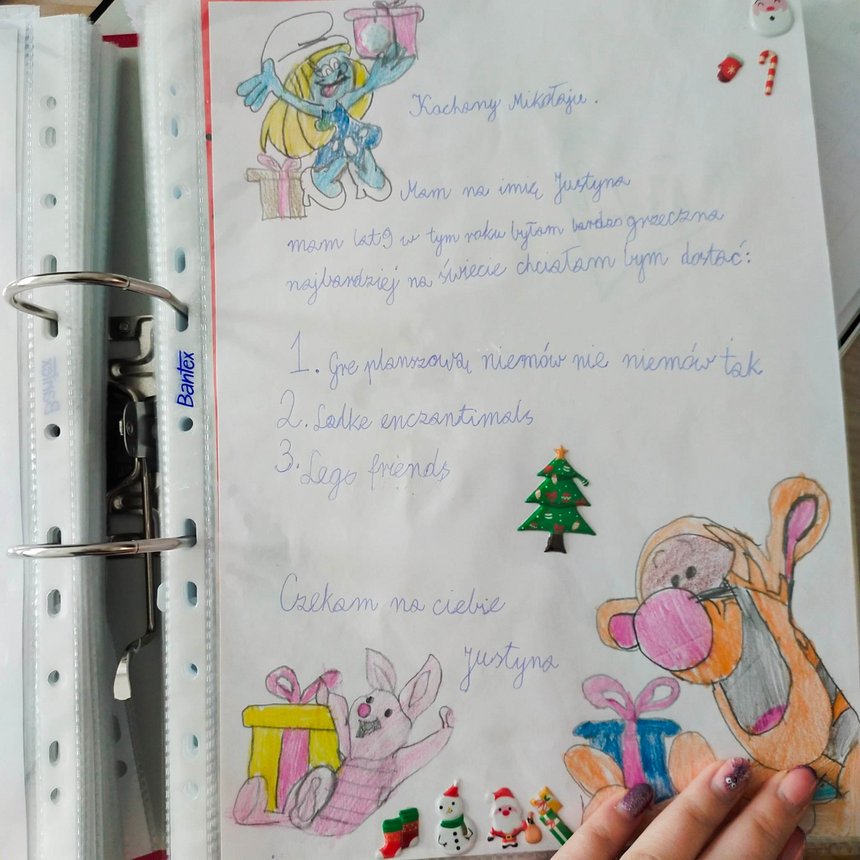 Kochany Mikołaju.
Mam na imię Justyna
mam lat 9 w tym roku byłam bardzo grzeczna
najbardziej na świecie chciałam bym dostać:
1. Gre planszową niemów nie niemów tak
2. Lalke enczantimals
3. Lego friends
Czekam na ciebie
Justyna
Bantex
Bantex